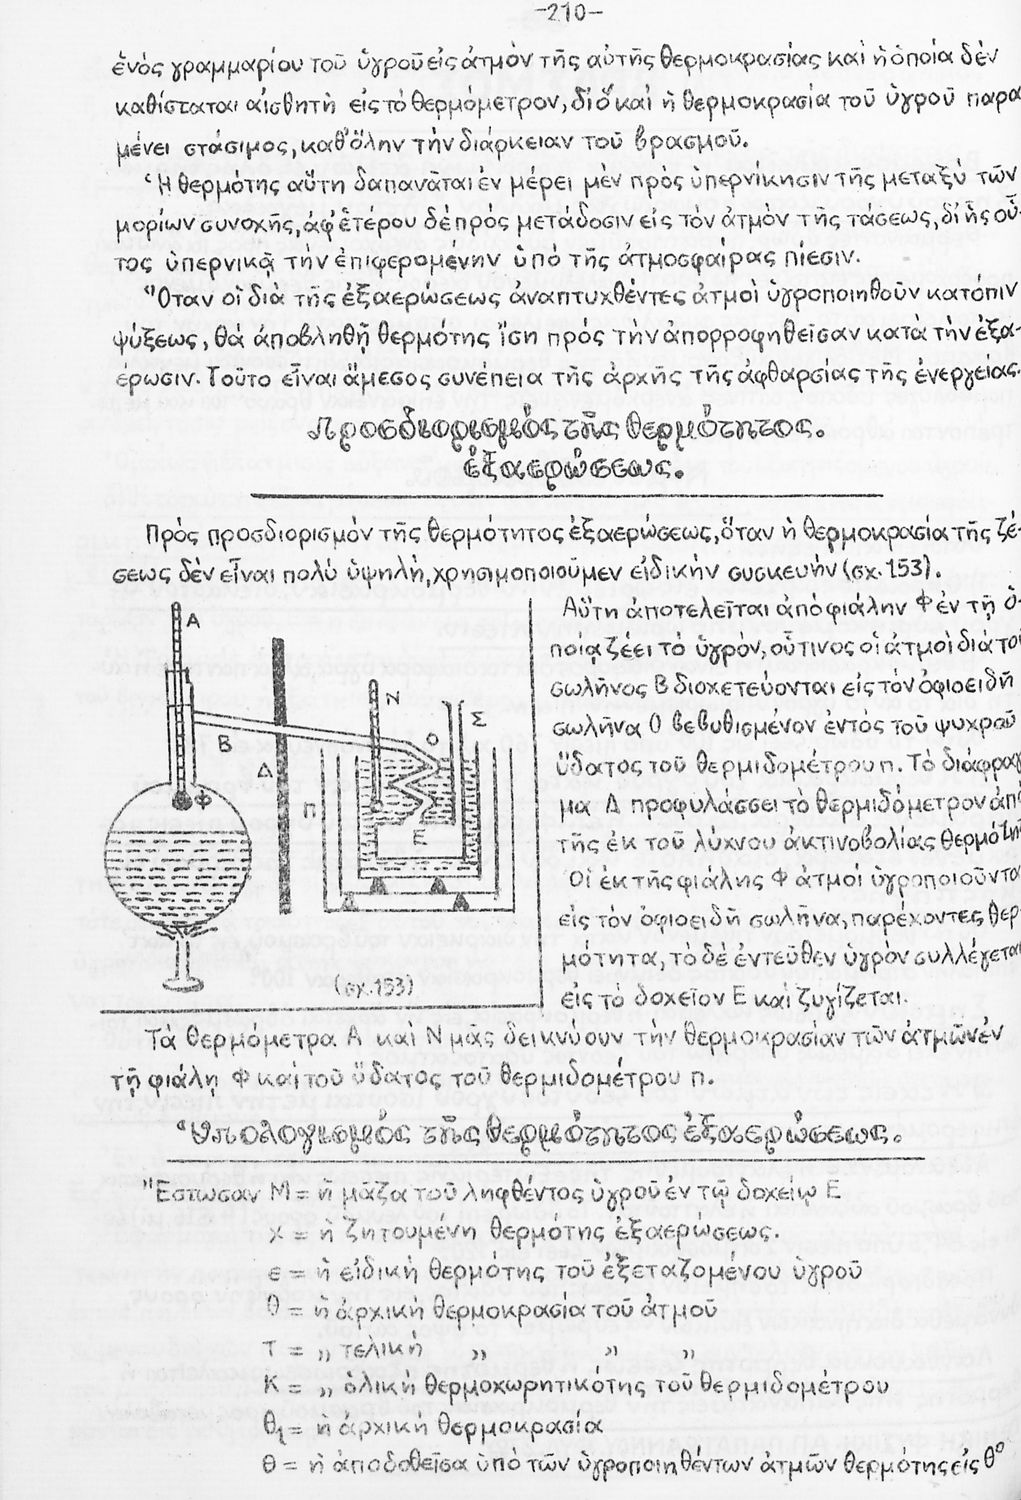 -210-
ἑνός γραμμαρίου τοῦ ὑγροῦ εἰς ἀτμόν τῆς αὐτῆς θερμοκρασίας καί ἡ ὁποία δέν
καθίσταται αἰσθητή εἰς τό θερμόμετρον, δι' ὅ καί ἡ θερμοκρασία τοῦ ὑγροῦ παρα
μένει στάσιμος, καθ' ὅλην τήν διάρκειαν τοῦ βρασμοῦ.
Ἡ θερμότης αὕτη δαπανᾶται ἐν μέρει μέν πρός ὑπερνίκησιν τῆς μεταξύ τῶν
μορίων συνοχῆς, ἀφ' ἑτέρου δέ πρός μετάδοσιν εἰς τόν ἀτμόν τῆς τάσεως, δι' ἧς οὗ-
τος ὑπερνικᾷ τήν ἐπιφερομένην ὑπό τῆς ἀτμοσφαίρας πίεσιν.
Ὅταν οἱ διά τῆς ἐξαερώσεως ἀναπτυχθέντες ἀτμοί ὑγροποιηθοῦν κατόπιν
ψύξεως, θά ἀποβληθῇ θερμότης ἴση πρός τήν ἀπορροφηθεῖσαν κατά τήν ἐξα-
έρωσιν. Τοῦτο εἶναι ἄμεσος συνέπεια τῆς ἀρχῆς τῆς ἀφθαρσίας τῆς ἐνεργείας.
Προσδιορισμός τῆς θερμότητος.
ἐξαερώσεως.
Πρός προσδιορισμόν τῆς θερμότητος ἐξαερώσεως, ὅταν ἡ θερμοκρασία τῆς ζέ-
σεως δέν εἶναι πολύ ὑψηλή, χρησιμοποιοῦμεν εἰδικήν συσκευήν (σχ. 153).
Αὕτη ἀποτελεῖται ἀπό φιάλην Φ ἐν τῇ ὁ-
ποίᾳ ζέει τό ὑγρόν, οὗτινος οἱ ἀτμοί διά τοῦ
σωλῆνος Β διοχετεύονται εἰς τόν ὀφιοειδῆ
σωλῆνα Ο βεβυθισμένον ἐντός τοῦ ψυχροῦ
ὕδατος τοῦ θερμιδομέτρου Π. Τό διάφραγ
μα Δ προφυλάσσει τό θερμιδόμετρον ἀπό
τῆς ἐκ τοῦ λύχνου ἀκτινοβολίας θερμότητ
Οἱ ἐκ τῆς φιάλης Φ ἀτμοί ὑγροποιοῦντα
εἰς τόν ὀφιοειδῆ σωλῆνα, παρέχοντες θερ-
μότητα, τό δέ ἐντεῦθεν ὑγρόν συλλέγεται
εἰς τό δοχεῖον Ε καί ζυγίζεται.
Α
Ν
Σ
Β
Ο
Δ
Π
Φ
Ε
(σχ. 153)
Τά θερμόμετρα Α καί Ν μᾶς δεικνύουν τήν θερμοκρασίαν τῶν ἀτμῶν ἐν
τῇ φιάλῃ Φ καί τοῦ ὕδατος τοῦ θερμιδομέτρου Π.
Ὑπολογισμός τῆς θερμότητος ἐξαερώσεως.
Ἔστωσαν Μ = ἡ μᾶζα τοῦ ληφθέντος ὑγροῦ ἐν τῷ δοχείῳ Ε
χ = ἡ ζητουμένη θερμότης ἐξαερώσεως.
ε = ἡ εἰδική θερμότης τοῦ ἐξεταζομένου ὑγροῦ
θ = ἡ ἀρχική θερμοκρασία τοῦ ἀτμοῦ
τ = „ τελική „ „ „
Κ = „ ὁλική θερμοχωρητικότης τοῦ θερμιδομέτρου
θ₁ = ἡ ἀρχική θερμοκρασία
Θ = ἡ ἀποδοθεῖσα ὑπό τῶν ὑγροποιηθέντων ἀτμῶν θερμότης εἰς θ°